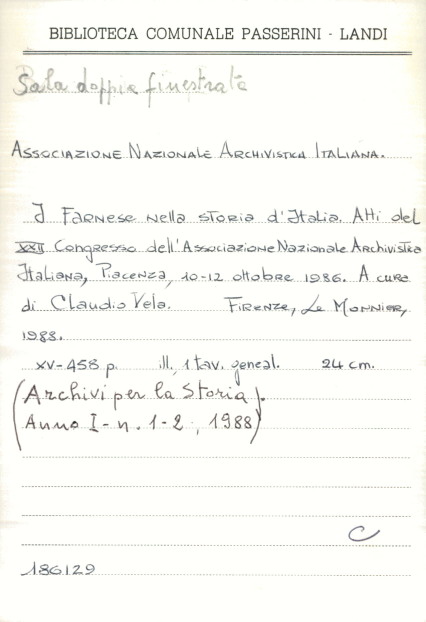 BIBLIOTECA COMUNALE PASSERINI - LANDI
Sala doppia finestrata
ASSOCIAZIONE NAZIONALE ARCHIVISTICA ITALIANA.
I FARNESE nella STORIA d'Italia. Atti del
XXII Congresso dell'Associazione Nazionale Archivistica
Italiana, Piacenza, 10-12 ottobre 1986. A cura
di Claudio Vela. FIRENZE, Le MONNIER,
1988.
XV-458 p. ill., 1 tav. geneal. 24 cm.
(Archivi per la Storia).
(Anno I- n. 1-2, 1988)
C
186129